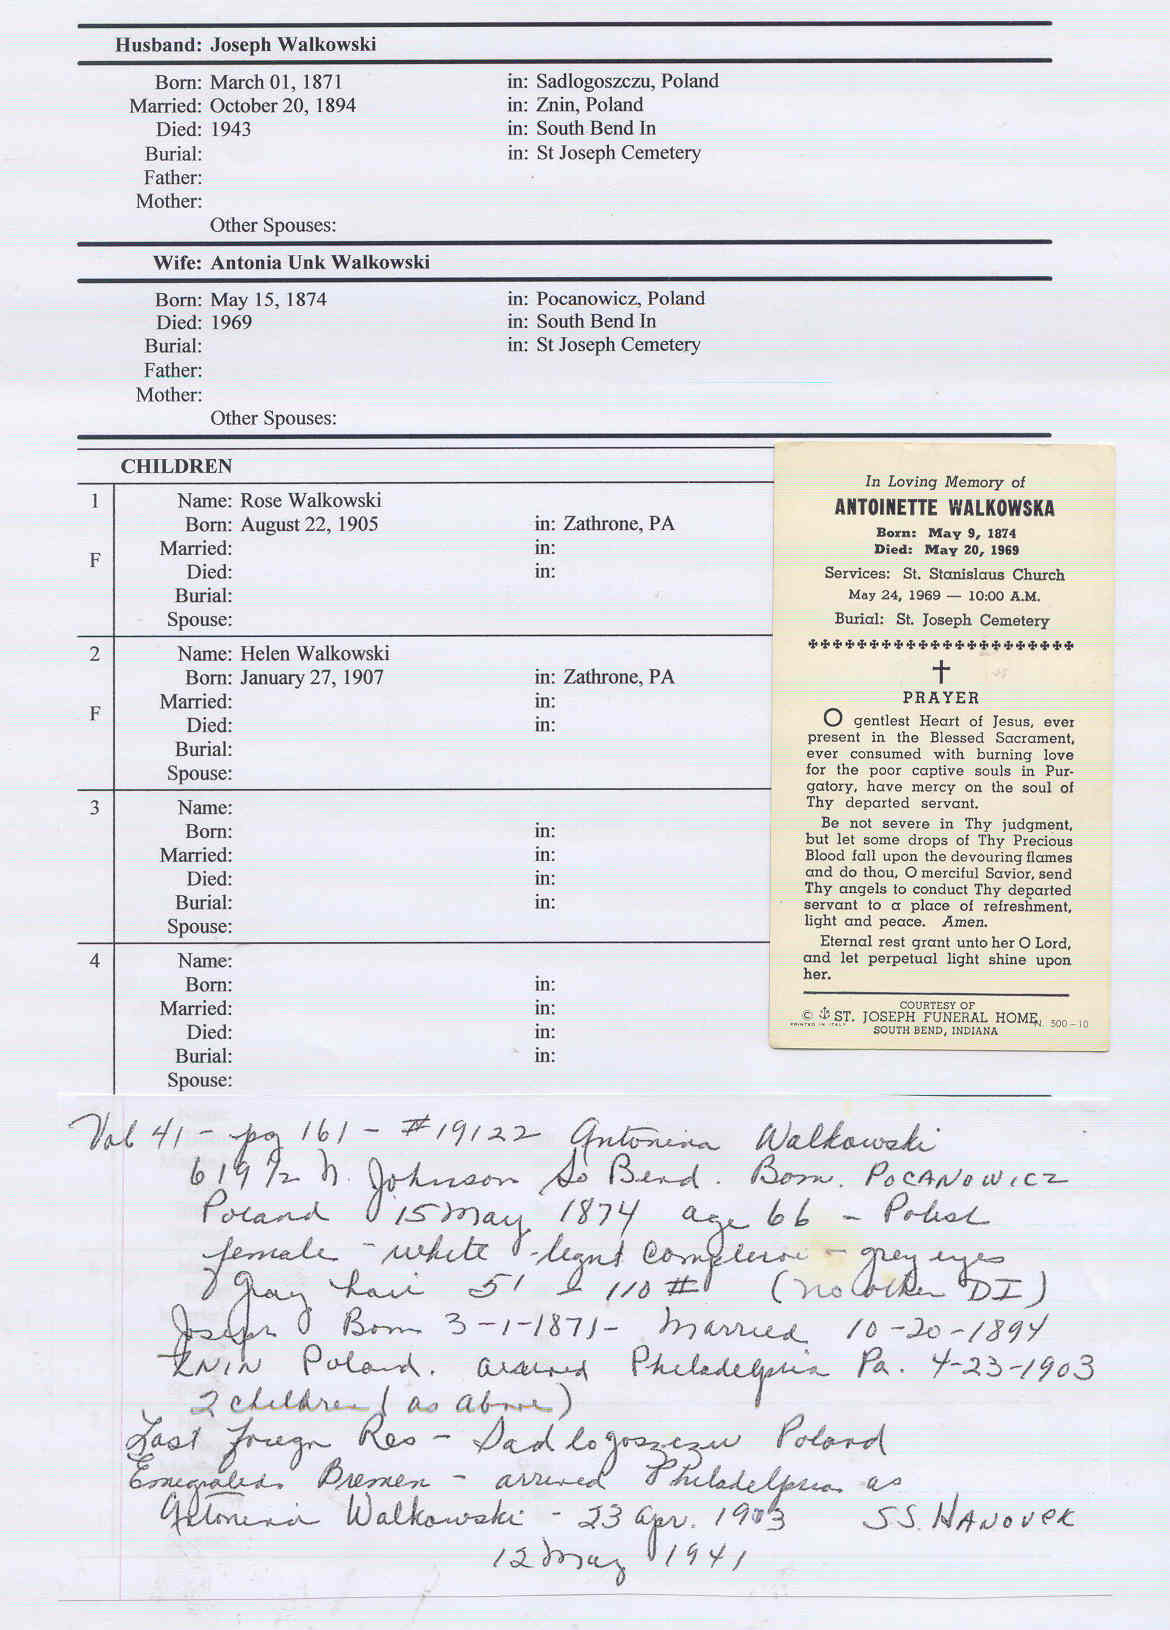 Husband: Joseph Walkowski
Born: March 01, 1871 in: Sadlogoszczu, Poland
Married: October 20, 1894 in: Znin, Poland
Died: 1943 in: South Bend In
Burial: in: St Joseph Cemetery
Father:
Mother:
Other Spouses:
Wife: Antonia Unk Walkowski
Born: May 15, 1874 in: Pocanowicz, Poland
Died: 1969 in: South Bend In
Burial: in: St Joseph Cemetery
Father:
Mother:
Other Spouses:
CHILDREN
1 Name: Rose Walkowski
Born: August 22, 1905 in: Zathrone, PA
F Married: in:
Died: in:
Burial:
Spouse:
2 Name: Helen Walkowski
Born: January 27, 1907 in: Zathrone, PA
F Married: in:
Died: in:
Burial:
Spouse:
3 Name:
Born: in:
Married: in:
Died: in:
Burial: in:
Spouse:
4 Name:
Born: in:
Married: in:
Died: in:
Burial: in:
Spouse:
In Loving Memory of
ANTOINETTE WALKOWSKA
Born: May 9, 1874
Died: May 20, 1969
Services: St. Stanislaus Church
May 24, 1969 — 10:00 A.M.
Burial: St. Joseph Cemetery
PRAYER
O gentlest Heart of Jesus, ever
present in the Blessed Sacrament,
ever consumed with burning love
for the poor captive souls in Pur-
gatory, have mercy on the soul of
Thy departed servant.
Be not severe in Thy judgment,
but let some drops of Thy Precious
Blood fall upon the devouring flames
and do thou, O merciful Savior, send
Thy angels to conduct Thy departed
servant to a place of refreshment,
light and peace. Amen.
Eternal rest grant unto her O Lord,
and let perpetual light shine upon
her.
COURTESY OF
© ST. JOSEPH FUNERAL HOME
PRINTED IN ITALY N. 500-10
SOUTH BEND, INDIANA
Vol 41 - pg 161 - #19122 Antonina Walkowski
619 1/2 N. Johnson So Bend. Born. POCANOWICZ
Poland 15 May 1874 age 66 - Polish
female - white - light complexion - grey eyes
Gray hair 5' - 110 # (no other DI)
Joseph Born 3-1-1871 - Married 10-20-1894
ZNIN Poland. arrived Philadelphia Pa. 4-23-1903
2 children (as above)
Last foreign Res - Sadlogoszczu Poland
Emigrated Bremen - arrived Philadelphia as
Antonina Walkowski - 23 Apr. 1903 S.S. HANOVER
12 May 1941